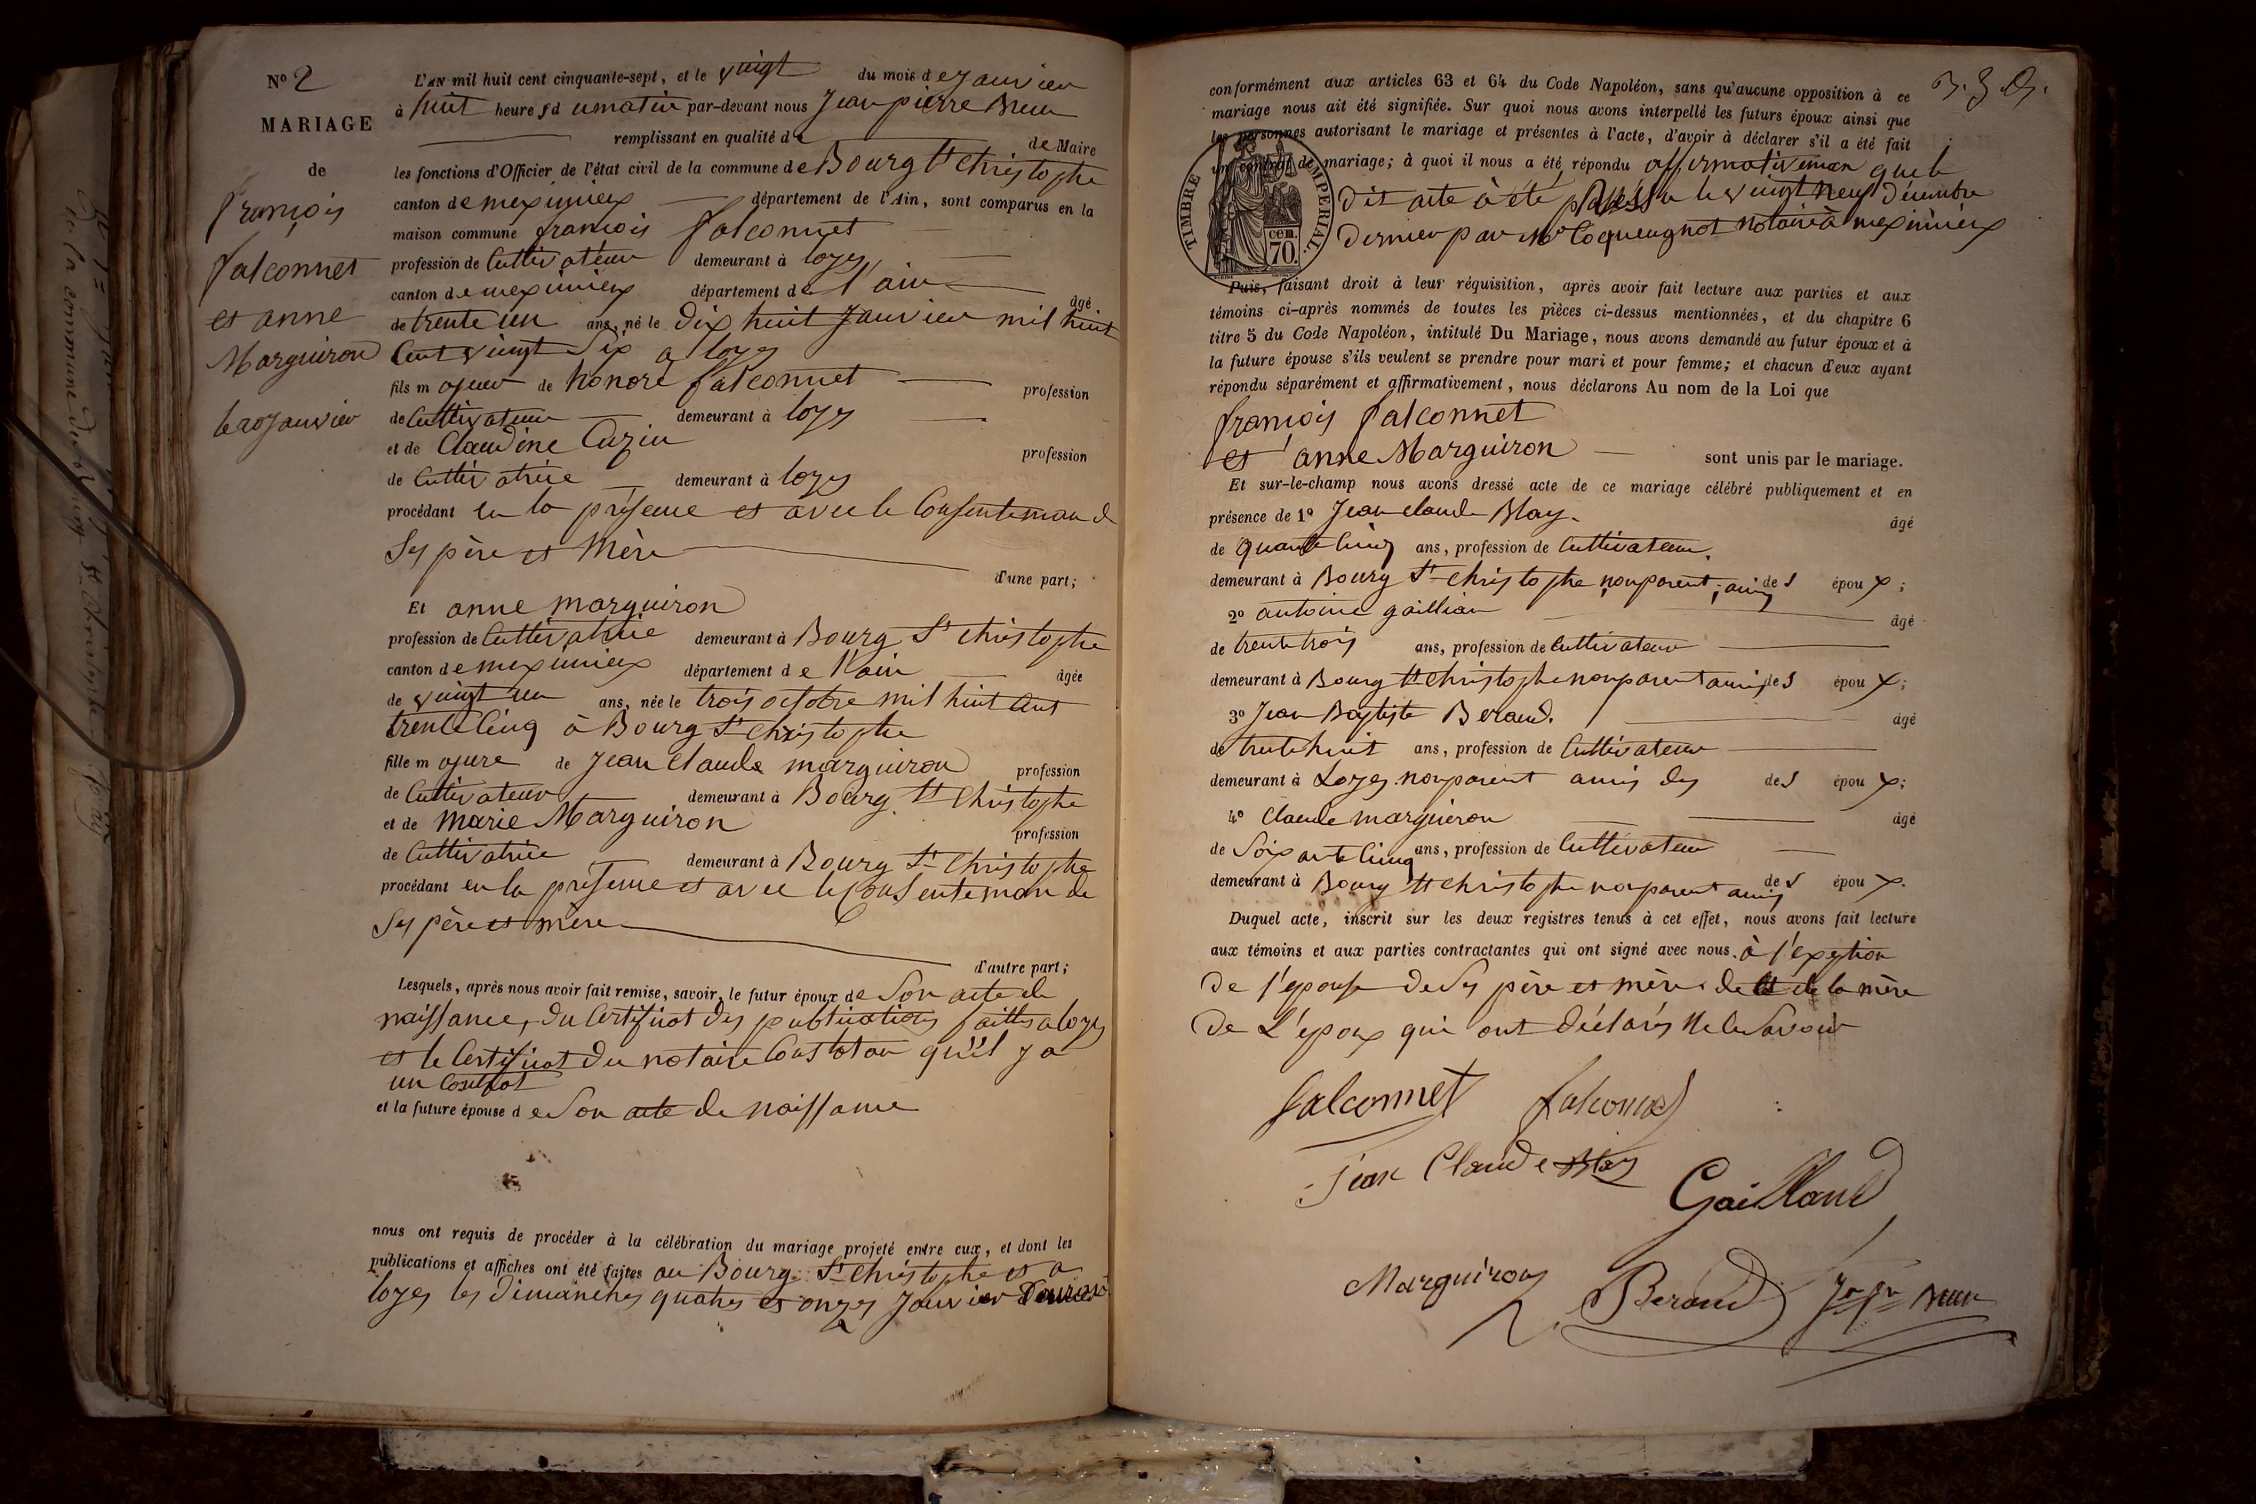 N° 2
MARIAGE
de
françois
falconnet
et anne
Marguiron
le 20 janvier
L'AN mil huit cent cinquante-sept, et le vuigt du mois de janvier
à huit heures du matin par-devant nous Jean pierre Brun
remplissant en qualité de de Maire
les fonctions d'Officier de l'état civil de la commune de Bourg St christophe
canton de meximieux département de l'Ain, sont comparus en la
maison commune françois falconnet
profession de Cultivateur demeurant à loyes
canton de meximieux département de l'ain âgé
de trente un ans, né le dix huit Janvier mil huit
Cent vuingt Six a loyes
fils majeur de honoré falconnet profession
de Cultivateur demeurant à loyes
et de Claudine Cuzin profession
de Cultivatrice demeurant à loyes
procédant en la présence et avec le Consenteman de
Ses père et Mère
d'une part;
Et anne marguiron
profession de Cultivatrice demeurant à Bourg St christophe
canton de meximieux département de l'ain âgée
de vuingt un ans, née le trois octobre mil huit Cent
trente Cinq à Bourg St christophe
fille majeure de Jean claude marguiron profession
de Cultivateur demeurant à Bourg St christophe
et de Marie Marguiron profession
de Cultivatrice demeurant à Bourg St christophe
procédant en la présence et avec le Consenteman de
Ses père et mère
d'autre part;
Lesquels, après nous avoir fait remise, savoir, le futur époux de Son acte de
naissance, du Certificat des publications faittes a loyes
et le Certificat du notaire Constatan qu'il y a
un Contrat
et la future épouse de Son acte de naissance
nous ont requis de procéder à la célébration du mariage projeté entre eux, et dont les
publications et affiches ont été faites au Bourg St christophe et a
loyes les dimanches quatre et onzes Janvier
conformément aux articles 63 et 64 du Code Napoléon, sans qu'aucune opposition à ce
mariage nous ait été signifiée. Sur quoi nous avons interpellé les futurs époux ainsi que
les personnes autorisant le mariage et présentes à l'acte, d'avoir à déclarer s'il a été fait
un contrat de mariage; à quoi il nous a été répondu affirmativeman que le
dit acte à été le vuingt neuf Décembre
dernier par Me Coqueugnot notaire a meximieux
TIMBRE IMPERIAL.
70. cen.
Puis, faisant droit à leur réquisition, après avoir fait lecture aux parties et aux
témoins ci-après nommés de toutes les pièces ci-dessus mentionnées, et du chapitre 6
titre 5 du Code Napoléon, intitulé Du Mariage, nous avons demandé au futur époux et à
la future épouse s'ils veulent se prendre pour mari et pour femme; et chacun d'eux ayant
répondu séparément et affirmativement, nous déclarons Au nom de la Loi que
françois falconnet
et anne Marguiron sont unis par le mariage.
Et sur-le-champ nous avons dressé acte de ce mariage célébré publiquement et en
présence de 1° Jean claude Blay. âgé
de quarante Cinq ans, profession de Cultivateur.
demeurant à Bourg St christophe nonparent, amis des époux;
2° antoine gaillian âgé
de trente trois ans, profession de Cultivateur
demeurant à Bourg St christophe nonparent amis des époux;
3° Jean Baptiste Beraud. âgé
de trente huit ans, profession de Cultivateur
demeurant à Loyes nonparent amis des des époux;
4° Claude marguieron âgé
de Soixante Cinq ans, profession de Cultivateur
demeurant à Bourg St christophe nonparent amis des époux.
Duquel acte, inscrit sur les deux registres tenus à cet effet, nous avons fait lecture
aux témoins et aux parties contractantes qui ont signé avec nous. à l'exeption
de l'épouse de Ses père et mère de la mère
de L'époux qui ont déclarés ne le Savoir
falconnet falconnet
jean Claude Blay
Gailland
Marguiron Beraud Jn Pre Brun